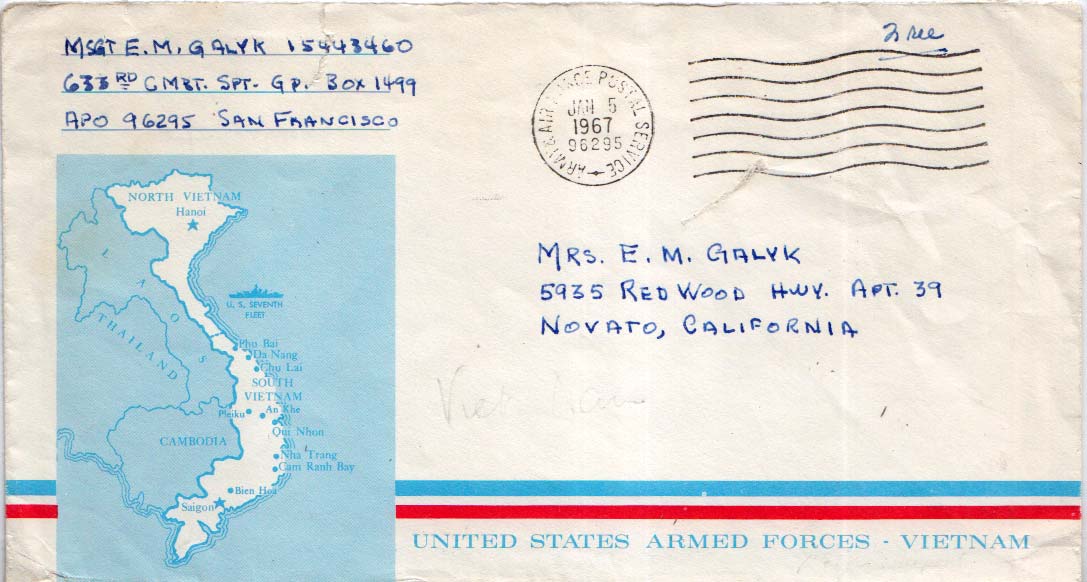 MSGT E. M. GALYK 15443460
633RD CMBT. SPT. GP. BOX 1499
APO 96295 SAN FRANCISCO
Free
ARMY & AIR FORCE POSTAL SERVICE
JAN 5
1967
96295
MRS. E. M. GALYK
5935 REDWOOD HWY. APT. 39
NOVATO, CALIFORNIA
NORTH VIETNAM
Hanoi
LAOS
U. S. SEVENTH
FLEET
THAILAND
Phu Bai
Da Nang
Chu Lai
SOUTH
VIETNAM
Pleiku
An Khe
Qui Nhon
CAMBODIA
Nha Trang
Cam Ranh Bay
Bien Hoa
Saigon
Viet Nam
UNITED STATES ARMED FORCES - VIETNAM